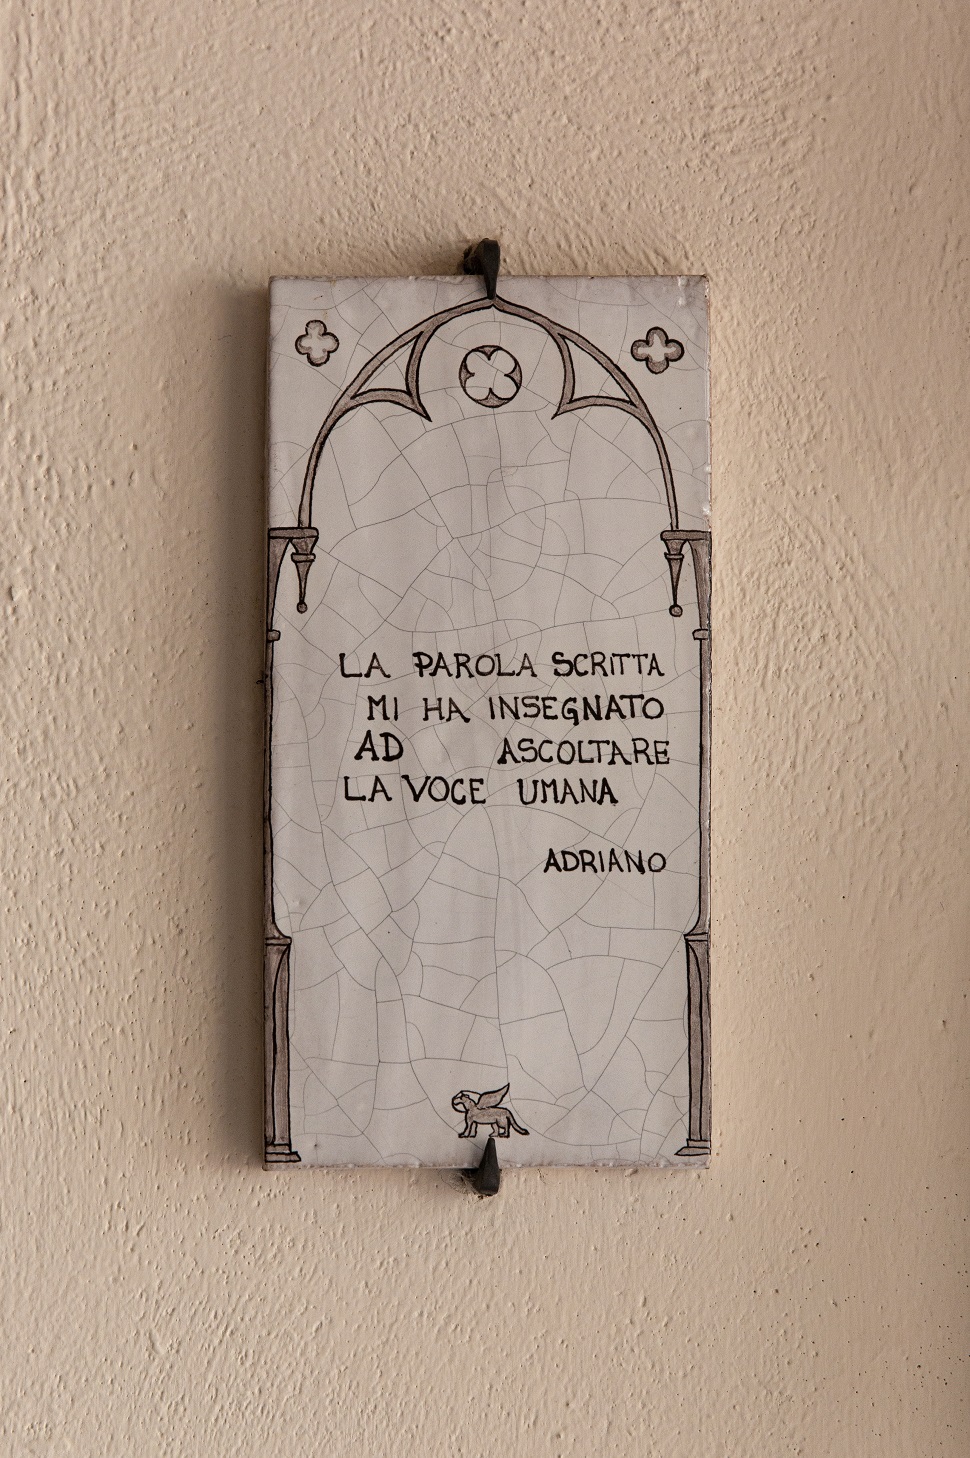 LA PAROLA SCRITTA
MI HA INSEGNATO
AD ASCOLTARE
LA VOCE UMANA
ADRIANO